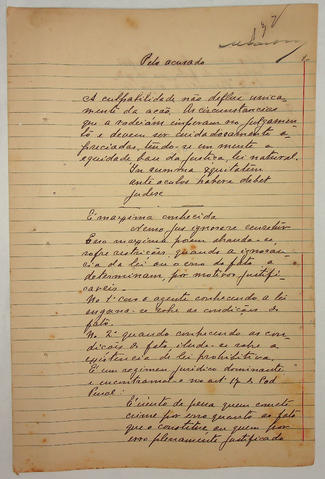 Pelo acusado
A culpabilidade não deflue unica-
mente da ação. As circunstancias
que a rodeiam imperam no julgamen-
to e devem ser cuidadosamente a-
preciadas, tendo-se em mente a
equidade base da justiça, lei natural.
summa equitatem
ante oculos habere debet
judex
É maxima conhecida
Nemo jus ignorare censetur
Essa maxima porem abranda-se,
sofre restrições, quando a ignoran-
cia da lei ou o erro de fato a
determinam, por motivos justifi-
caveis.
No 1º caso o agente conhecendo a lei
engana-se sobre as condições do
fato.
No 2º quando conhecendo as con-
dições do fato ilude-se sobre a
existencia de lei prohibitiva.
É um regimen juridico dominante
e encontramo-o no art 17 do Cod
Penal:
É isento de pena quem comete
crime por erro quanto ao fato
que o constitue ou quem por
erro plenamente justificado